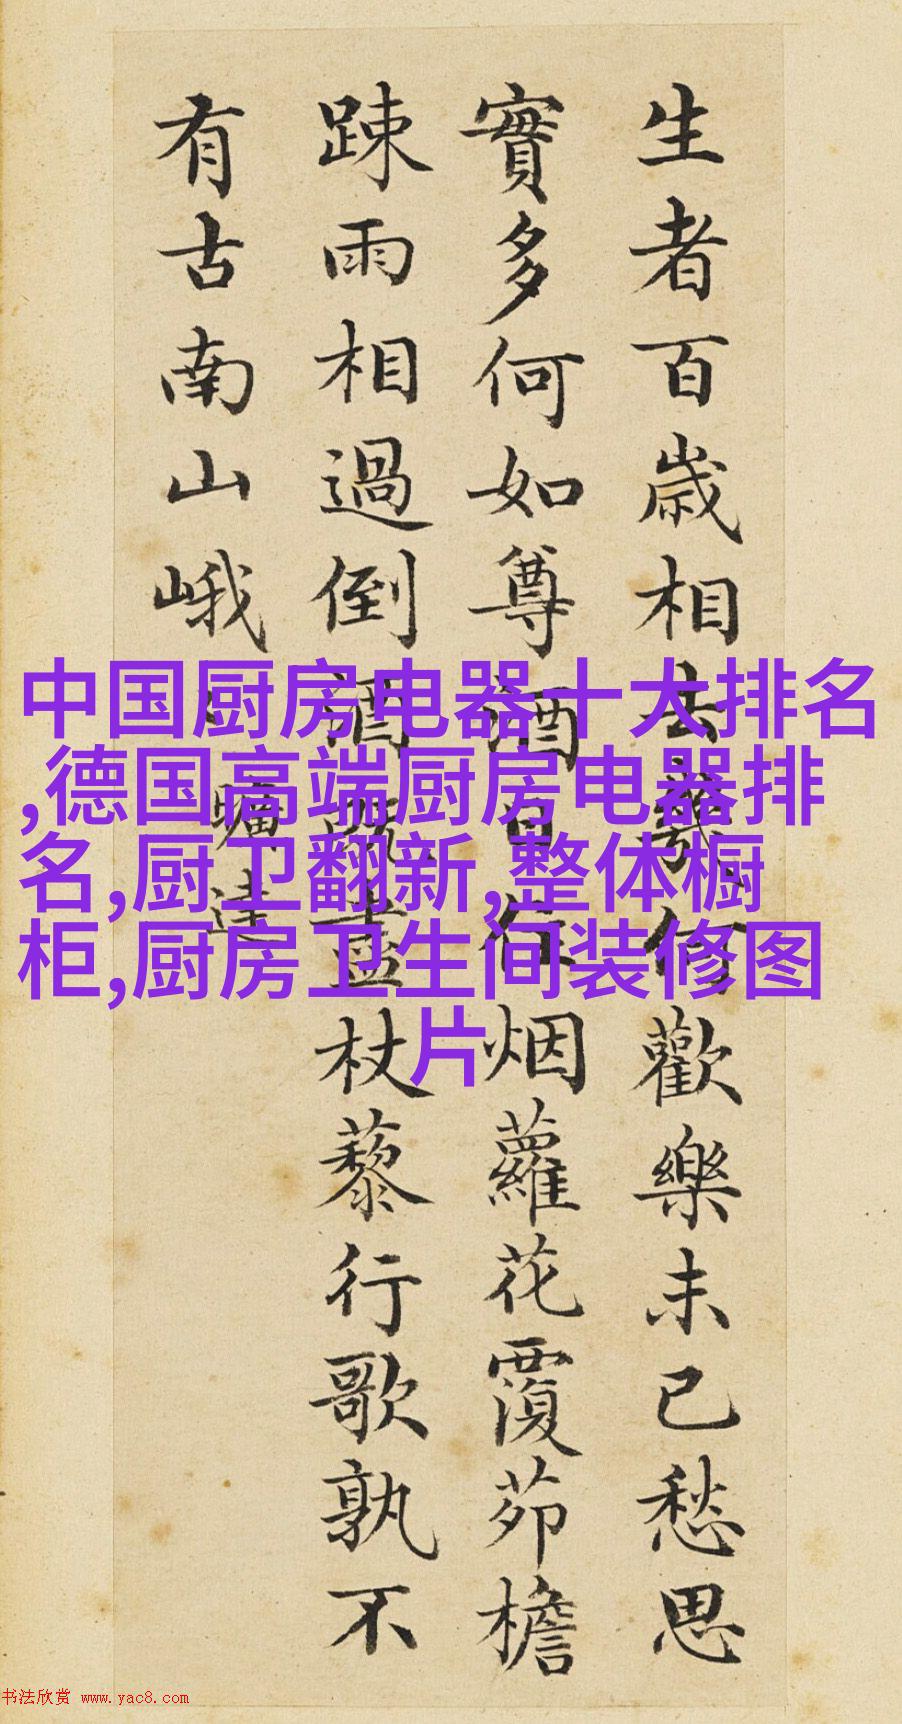 生者百歲相去幾何歡樂未已愁思
實多何如尊酒日往烟蘿花覆茆檐
踈雨相過倒酒既盡杖藜行歌孰不
有古南山峨曠達
中国厨房电器十大排名
,德国高端厨房电器排
名,厨卫翻新,整体橱
柜,厨房卫生间装修图
片
书法欣赏 www.yac8.com